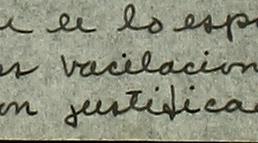 e lo esp
vacilacion
on justifica